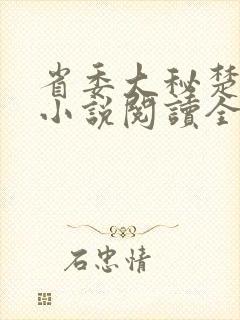 省委大秘楚
小説閱讀全
石忠情